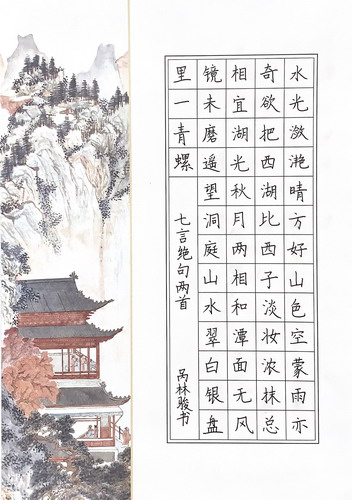 水光潋滟晴方好山色空蒙雨亦
奇欲把西湖比西子淡妆浓抹总
相宜湖光秋月两相和潭面无风
镜未磨遥望洞庭山水翠白银盘
里一青螺
七言绝句两首
呙林骏书